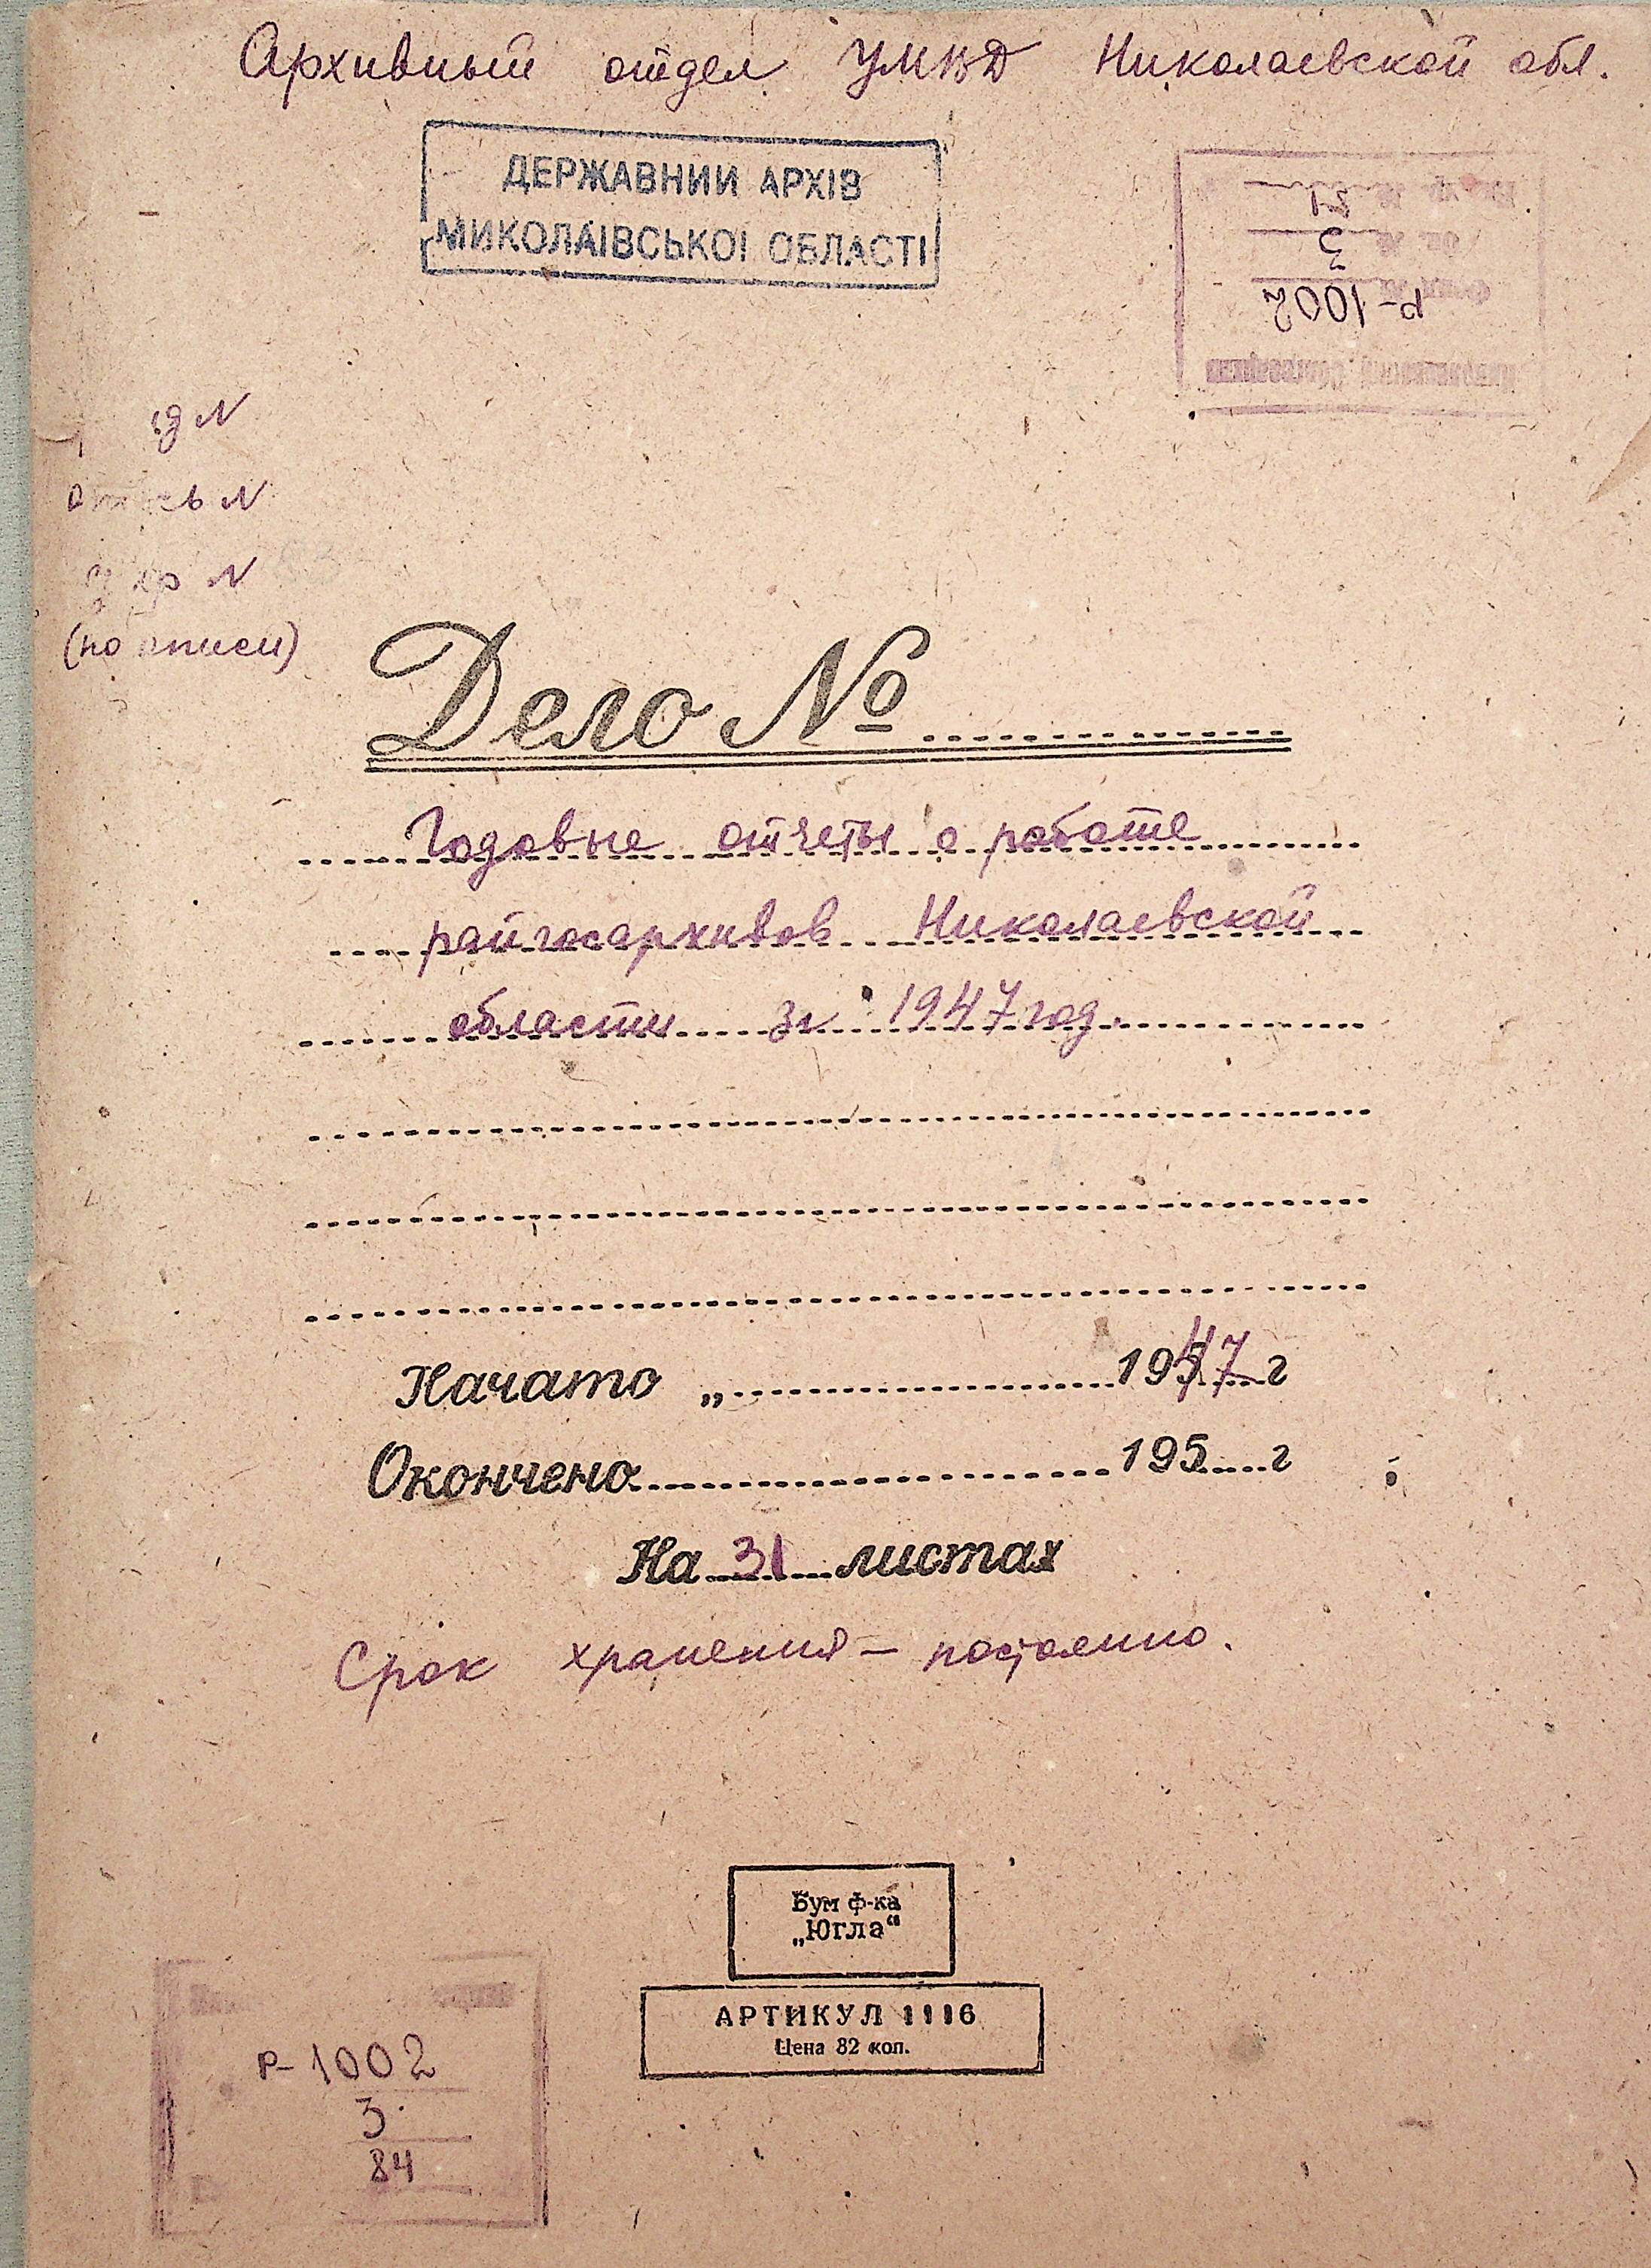 Архивный отдел УМВД Николаевской обл.
ДЕРЖАВНИЙ АРХІВ
МИКОЛАЇВСЬКОЇ ОБЛАСТІ
Р-1002
3
N
N
N
(по описи)
Дело №
Годовые отчеты о работе
райгосархивов Николаевской
области за 1947 год.
Начато „ 1947 г
Окончено 195 г
На 31 листах
Срок хранения — постоянно.
Бум ф-ка
„Югла“
АРТИКУЛ 1116
Цена 82 коп.
Р-1002
3
84